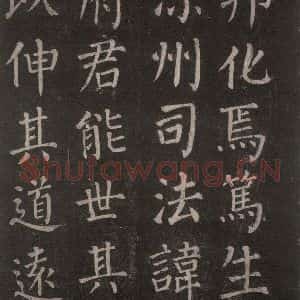 化焉篤生
涼州司法諱
府君能世其
以伸其道遠
Shufawang.CN